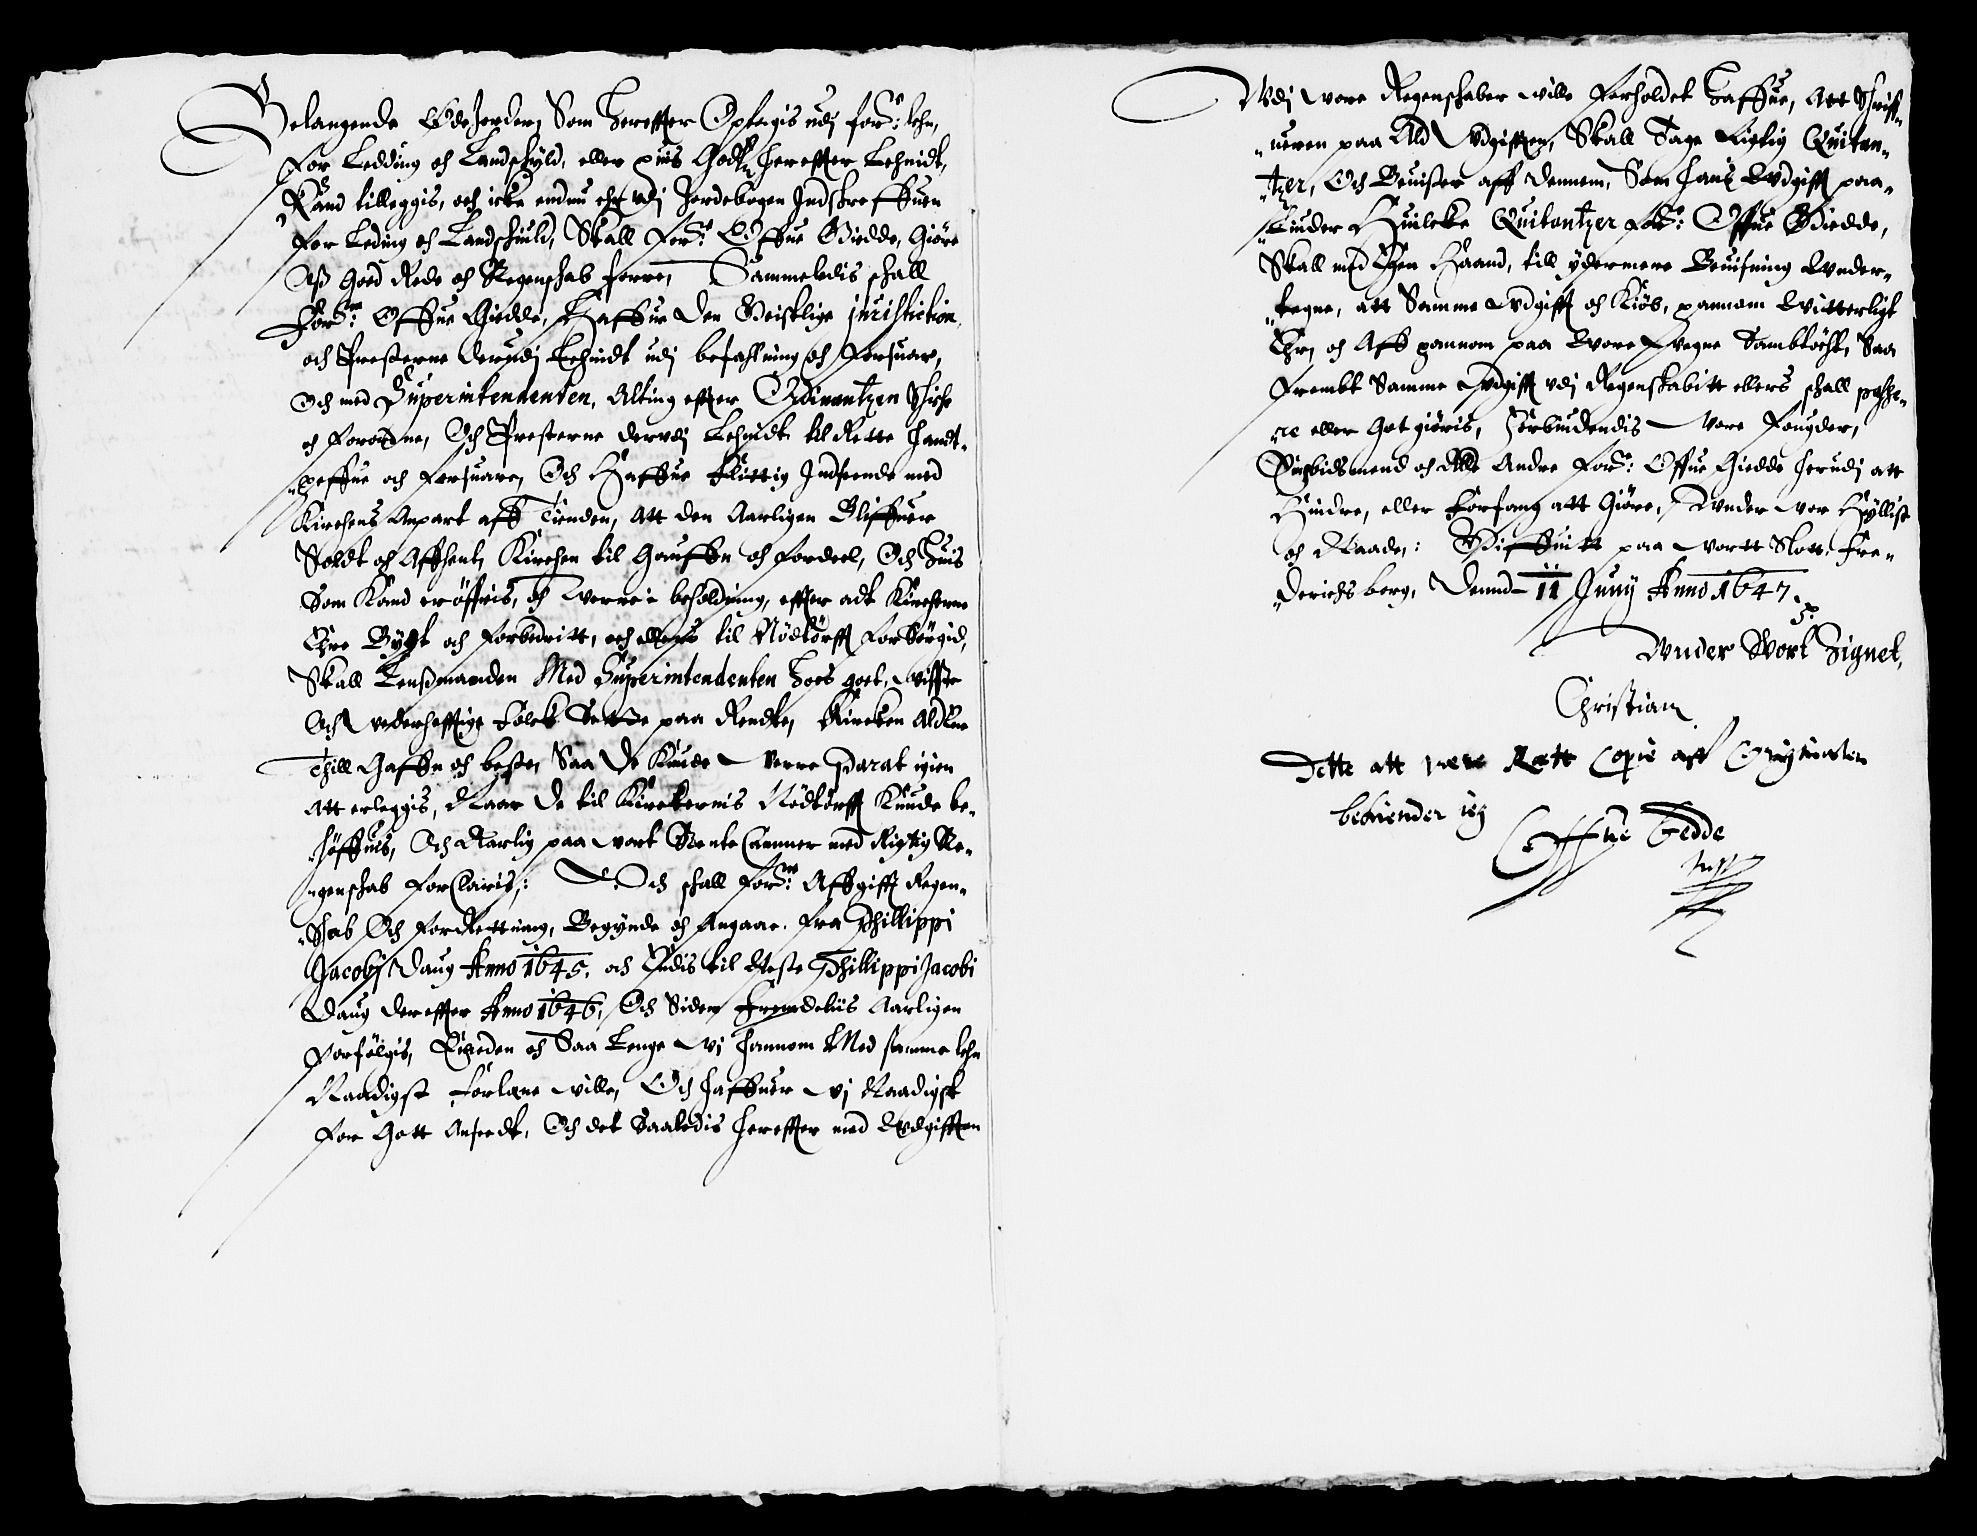 Belangende Ødejorder, Som Hereffter Optagis udj for:ne lehn,
for Ledding och Landskyld, eller huis Godtz hereffter Lehnidt,
Kand tilleggis, och icke endnu ehr udj Jordebogen Indskreffuen
for Leding och Landschuld, Skall for:ne Offue Giedde, Giøre
Aß Goed Rede och Regenschab forre, Sammeledis schall
for:ne Offue Giedde, Haffue den Geistlige juristiction,
och Presterne derudj Lehnidt udj befahlning och forsuar,
Och med Superintendenten, Alting effter Ordinantzen Schiche
och forordne, Och Presterne derudj Lehnidt til Rette Handt-
heffue och forsuare, Och Haffue flittig Indseende med
Kirchens Anpart aff Tienden, att den Aarligen Bliffuer
Soldt och Affhent, Kirchen til Gauffn och fordeel, Och Huis
Som Kand eröffris, och Werre i beholdning, effter adt Kircherne
Ehre Bygt och forbedritt, och ellers til Nödtörfft forSörgid,
Skall Lenßmanden Med Superintendenten Hoes goet, visse
Och vederhefftige folck Sette paa Rendte, Kircken Aldtue
Thill Gaffn och beste, Saa De Kunde Verre Parat igien
Att erleggis, Naar de til Kirckernis Nödtörfft Kunde be-
höffuis, Och Aarlig paa vort Rente Cammer med Rigtig Re-
genschab forClaris,: Och schall for:ne Affgifft Regen-
Schab Och forRettning, Begynde och Angaar fra Philippi
Jacobj Daug Anno 1645, och Endis til Neste Phillippi Jacobi
Daug dereffter Anno 1646, Och Siden fremdeliis Aarligen
forfölgis, Eiheden och Saa Lenge Vi hannom Med samme lehn
Naadigst forlæne ville, Och haffuer Vj Naadigst
for Gott Anseedt, Och det Saaledis hereffter med Udgifften
Udj vore Regenschaber ville forholdet Haffue, Att Schriff-
ueren paa Ald Udgifften, Skall Tage Rigtig Quitan-
tzer, Och Beuißer aff dennem, Som Hans Udgifft paa-
Liuder Huilcke Quitantzer for:ne Offue Giedde,
Skall med Egen Haand, till ydermere Beuisning Under-
tegne, att Samme Udgifft och Kiöb, hannom Witterligt
Ehr, och Aff hannom paa Wore vegne Sambtöcht, Saa
frembt Samme Udgifft udj Regenskabitt ellers schall passe-
re eller Got giöris, forbiudendis Vore fougder,
Embidsmend och Alle Andre for:ne Offue Giedde herudj att
Hindre, eller forfang att Giöre, Under vor Hyllist
och Naade,: Giffuitt paa Vortt Slott, fre-
derichs borg, Dennd 11 Juny Anno 1647
Under Wort Zignet,
Christian
Dette att vere Rett Copie aff Originalen
bekiender ieg
Offue Gedde